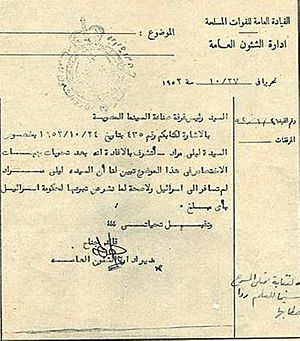 القيادة العامة للقوات المسلحة
الموضوع :
ادارة الشئون العامة
تحريرا في ١٠/٢٧ ١٩٥٢
السيد رئيس غرفة صناعة السينما المصرية
رقم القيد
المرفقات
بالاشارة لكتابكم رقم ٤٣٥ بتاريخ ١٩٥٢/١٠/٢٤ بخصوص
السيدة ليلى مراد - أتشرف بالافادة انه بعد تحريات جهات
الاختصاص فى هذا الموضوع تبين لنا أن السيده ليلى مراد
لم تسافر الى اسرائيل ولاصحة لما نشر عن تبرعها لحكومة اسرائيل
بأى مبلغ
وتقبل تحياتى
قائد جناح
مدير ادارة الشئون العامه